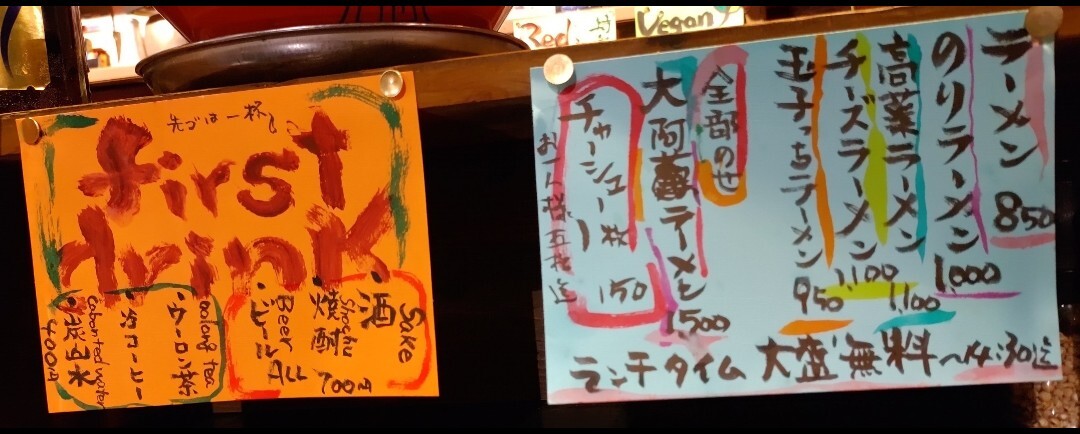 Red
Vegan
先づは一杯
first
drink
酒
Sake
焼酎
Shochu
ビール
Beer
ALL 700円
・ウーロン茶
oolong Tea
Cabonted water
400円
ラーメン 850
のりラーメン 1,000
高菜ラーメン 1,100
チーズラーメン 1,100
玉子っちラーメン 950
全部のせ
大阿蘇ラーメン 1,500
チャーシュー一枚 150
お一人様五枚迄
ランチタイム 大盛無料〜14:30迄